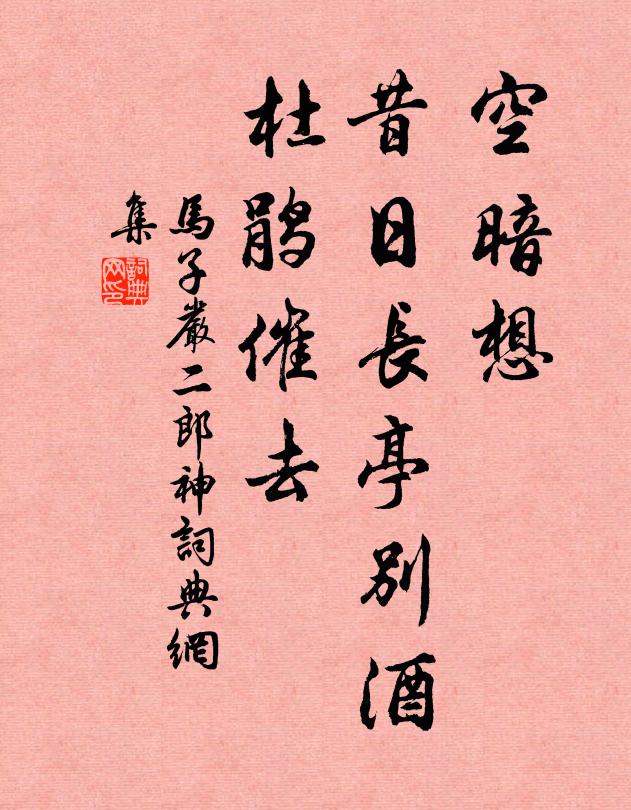 空暗想
昔日長亭别酒
杜鹃催去
馬子嚴二郎神詞典網
集
詞典
网印